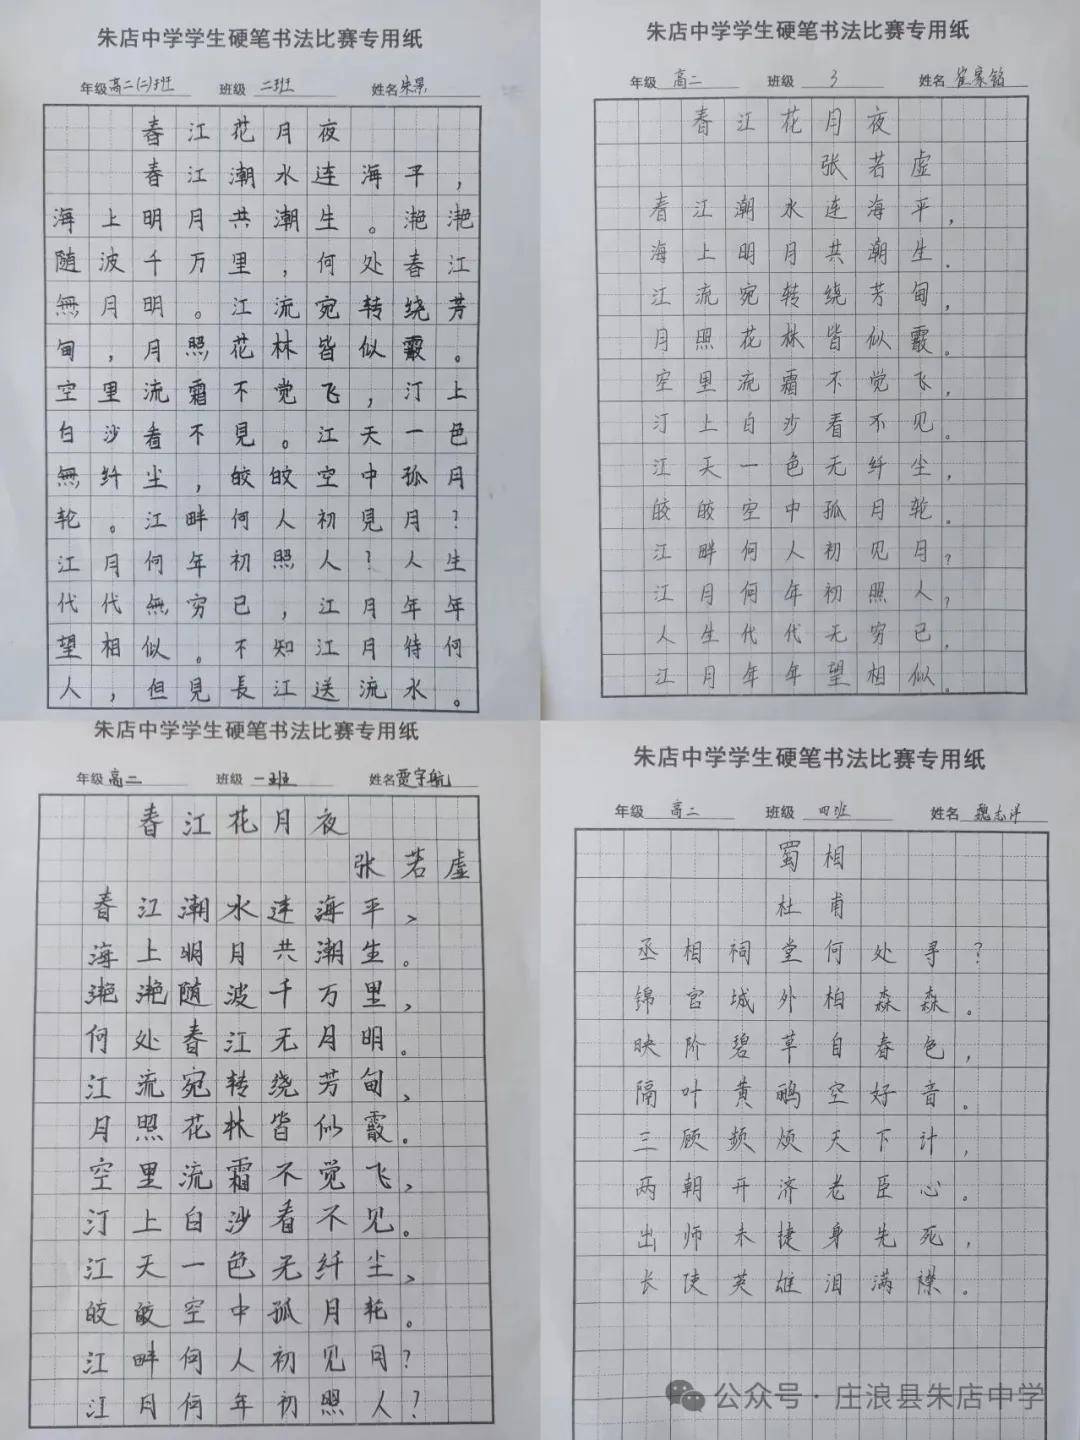 朱店中学学生硬笔书法比赛专用纸
年级 高二(二)班 班级 二班 姓名 朱景
春江花月夜
春江潮水连海平，
海上明月共潮生。滟滟
随波千万里，何处春江
無月明。江流宛转绕芳
甸，月照花林皆似霰。
空里流霜不觉飞，汀上
白沙看不見。江天一色
無纤尘，皎皎空中孤月
轮。江畔何人初見月？
江月何年初照人？人生
代代無穷已，江月年年
望相似。不知江月待何
人，但見長江送流水。
朱店中学学生硬笔书法比赛专用纸
年级 高二 班级 3 姓名 崔家铭
春江花月夜
张若虚
春江潮水连海平，
海上明月共潮生。
江流宛转绕芳甸，
月照花林皆似霰。
空里流霜不觉飞，
汀上白沙看不见。
江天一色无纤尘，
皎皎空中孤月轮。
江畔何人初见月？
江月何年初照人？
人生代代无穷已，
江月年年望相似。
朱店中学学生硬笔书法比赛专用纸
年级 高二 班级 一班 姓名 贾宇航
春江花月夜
张若虚
春江潮水连海平，
海上明月共潮生。
滟滟随波千万里，
何处春江无月明。
江流宛转绕芳甸，
月照花林皆似霰。
空里流霜不觉飞，
汀上白沙看不见。
江天一色无纤尘，
皎皎空中孤月轮。
江畔何人初见月？
江月何年初照人？
朱店中学学生硬笔书法比赛专用纸
年级 高二 班级 四班 姓名 魏志洋
蜀相
杜甫
丞相祠堂何处寻？
锦官城外柏森森。
映阶碧草自春色，
隔叶黄鹂空好音。
三顾频烦天下计，
两朝开济老臣心。
出师未捷身先死，
长使英雄泪满襟。
公众号·庄浪县朱店中学